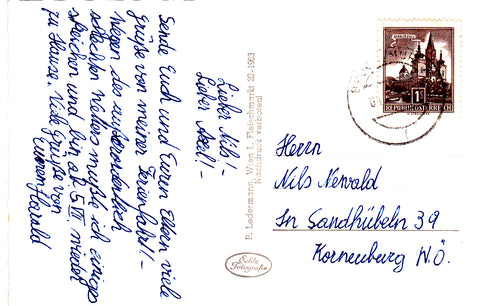 Lieber Nils!-
Lieber Axel!-
Sende Euch und Euren Eltern viele
Grüße von meiner Ferienfahrt!-
Wegen des außerordentlich
schlechten Wetters mußte ich einiges
streichen und bin ab 5. VIII wieder
zu Hause. Viele Grüße von
Eurem Harald
P. Ledermann, Wien I, Fleischmarkt 20-1963
Nachdruck verboten!
Echte
Fotografie
REPUBLIK ÖSTERREICH
1
Herrn
Nils Newald
In Sandhübeln 39
Korneuburg N.Ö.